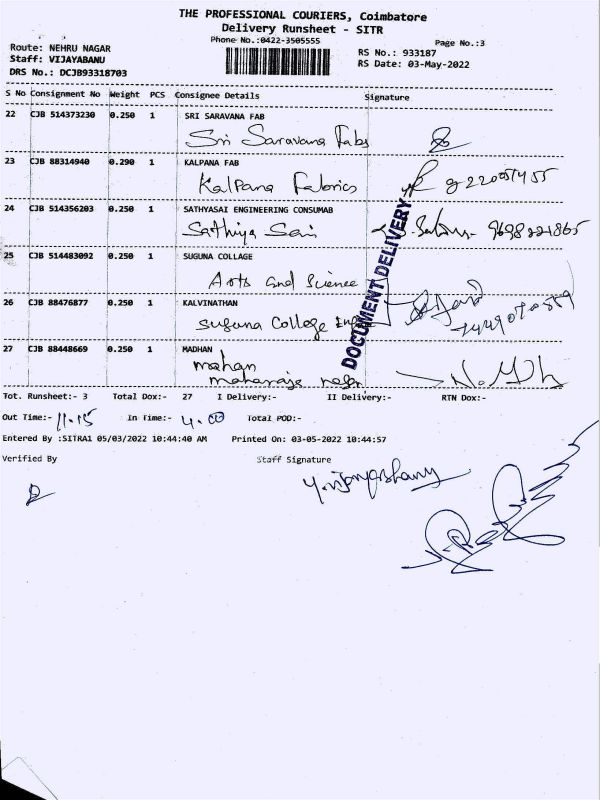 THE PROFESSIONAL COURIERS, Coimbatore
Delivery Runsheet - SITR
Phone No.:0422-3505555
Page No.:3
Route: NEHRU NAGAR
Staff: VIJAYABANU
DRS No.: DCJB93318703
RS No.: 933187
RS Date: 03-May-2022
S No Consignment No Weight PCS Consignee Details Signature
22 CJB 514373230 0.250 1 SRI SARAVANA FAB
Sri Saravana Fabs
23 CJB 88314940 0.290 1 KALPANA FAB
Kalpana Fabrics
24 CJB 514356203 0.250 1 SATHYASAI ENGINEERING CONSUMAB
Sathiya Sai
25 CJB 514483092 0.250 1 SUGUNA COLLAGE
Arts and Science
26 CJB 88476877 0.250 1 KALVINATHAN
Suguna College
27 CJB 88448669 0.250 1 MADHAN
mohan
maharaja nagar
DOCUMENT DELIVERY
Tot. Runsheet:- 3 Total Dox:- 27 I Delivery:- II Delivery:- RTN Dox:-
Out Time:- 11.15 In Time:- 4.00 Total POD:-
Entered By :SITRA1 05/03/2022 10:44:40 AM Printed On: 03-05-2022 10:44:57
Verified By Staff Signature